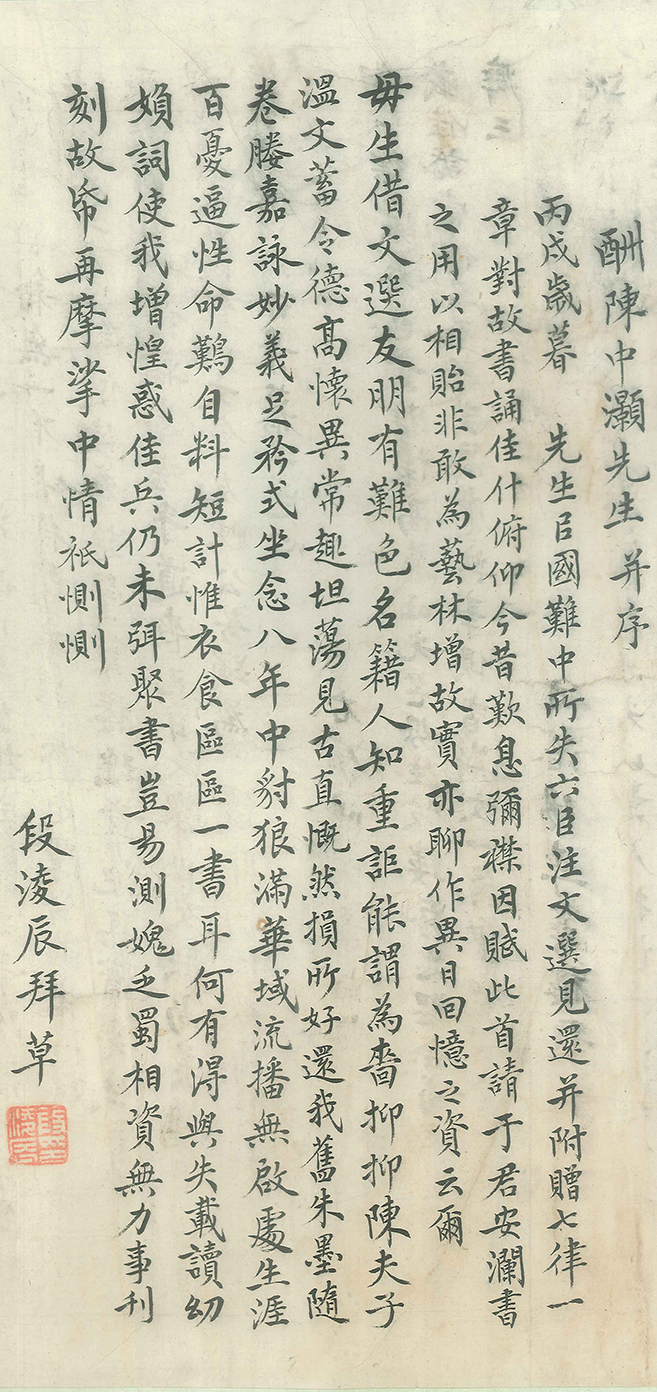 酬陳中灝先生并序
丙戌歲暮　先生㠯國難中所失六臣注文選見還并附贈七律一
章對故書誦佳什俯仰今昔歎息彌襟因賦此首請于君安瀾書
之用以相貽非敢為藝林增故實亦聊作異日回憶之資云爾
毋生借文選友朋有難色名籍人知重詎能謂為嗇抑抑陳夫子
溫文蓄令德高懷異常趣坦蕩見古直慨然損所好還我舊朱墨隨
卷媵嘉詠妙義足矜式坐念八年中豺狼滿華域流播無啟處生涯
百憂逼性命鷄自料短計惟衣食區區一書耳何有得與失載讀幼
頞詞使我增惶惑佳兵仍未弭聚書豈易測媿乏蜀相資無力事刊
刻故帋再摩挲中情祇惻惻
段淩辰拜草